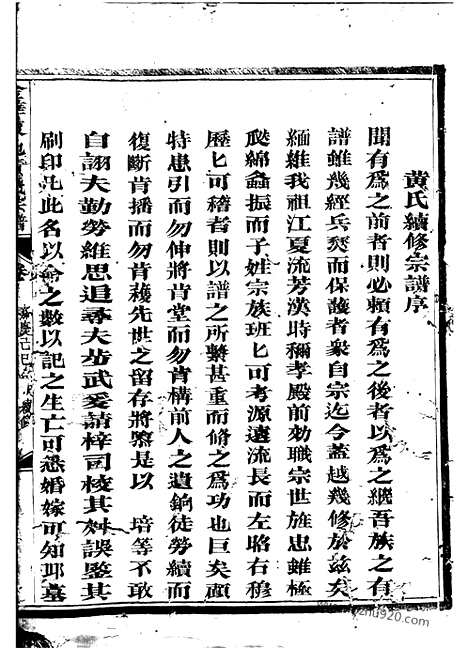 黃氏續修宗譜序
聞有為之前者則必賴有為之後者以為之繼吾族之有
譜雖幾經兵燹而保護者衆自宗迄今蓋越幾修於茲矣
緬維我祖江夏流芳漢時稱孝殿前効職宗世旌忠雖極
瓞綿螽振而子姓宗族班匕可考源遠流長而左昭右穆
歷匕可稽者則以譜之所繫甚重而脩之為功也巨矣顧
特患引而勿伸將肯堂而勿肯構前人之遺銷徒勞續而
復斷肯播而勿肯穫先世之留存將墜是以 培等不敢
自謝夫勤勞維思追尋夫步武爰請梓司核其舛誤鑒其
刷印凡此名以繪之數以記之生亡可悉婚嫁可知邱墓
宗譜
卷
己巳
www.yzhu920.com